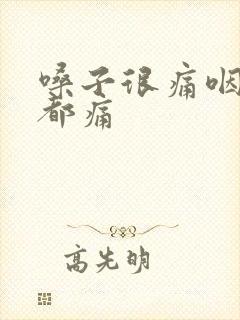 嗓子很痛咽
都痛
高先明